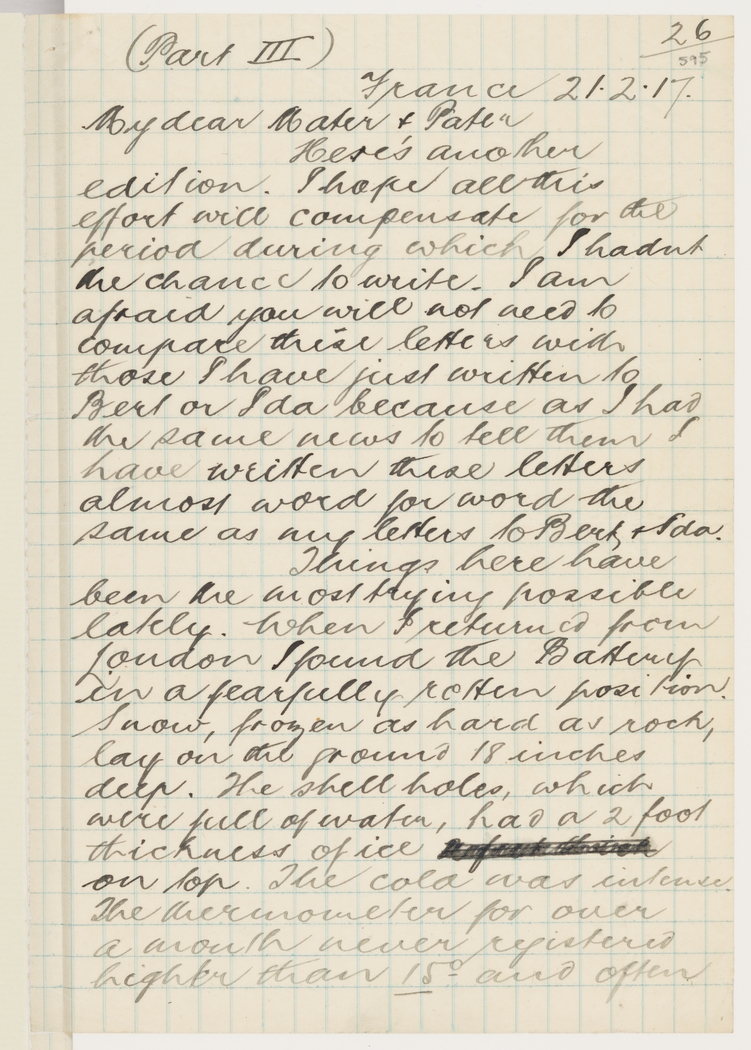 (Part III)
26
595
France 21.2.17.
My dear Mater & Pater
Here's another
edition. I hope all this
effort will compensate for the
period during which I hadnt
the chance to write. I am
afraid you will not need to
compare these letters with
those I have just written to
Bert or Ida because as I had
the same news to tell them I
have written these letters
almost word for word the
same as my letters to Bert & Ida.
Things here have
been the most trying possible
lately. When I returned from
London I found the Battery
in a fearfully rotten position.
Snow, frozen as hard as rock,
lay on the ground 18 inches
deep. The shell holes, which
were full of water, had a 2 foot
thickness of ice
on top. The cold was intense.
The thermometer for over
a month never registered
higher than 15° and often